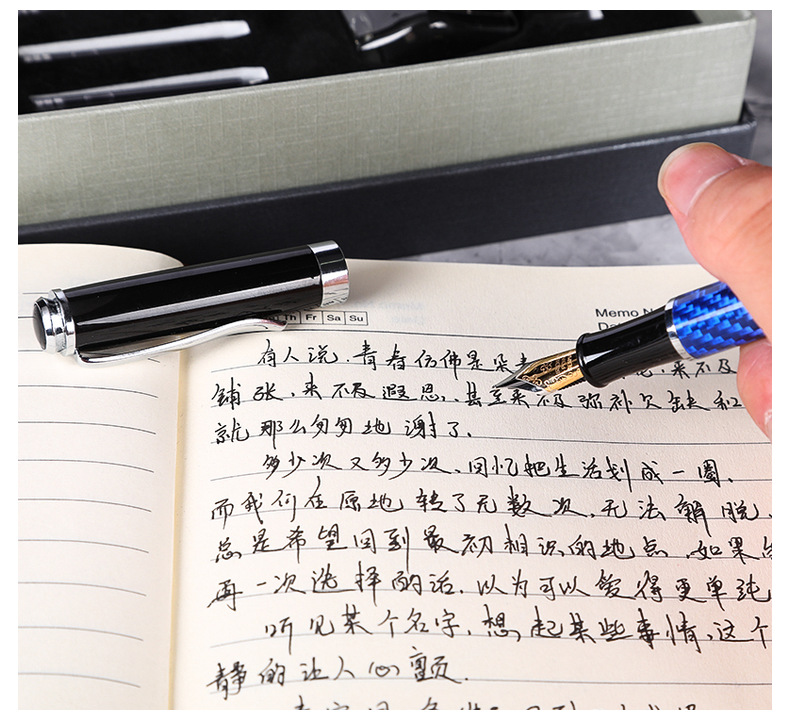 Th Fr Sa Su
Memo N
Da
有人说,青春仿佛是朵 ,来不及
铺张,来不及遐思,甚至来不及弥补欠缺和
就那么匆匆地谢了。
多少次又多少次,回忆把生活划成一圈,
而我们在原地转了无数次,无法解脱,
总是希望回到最初相识的地点,如果能
再一次选择的话,以为可以爱得更单纯
听见某个名字,想起某些事情,这个
静的让人心颤